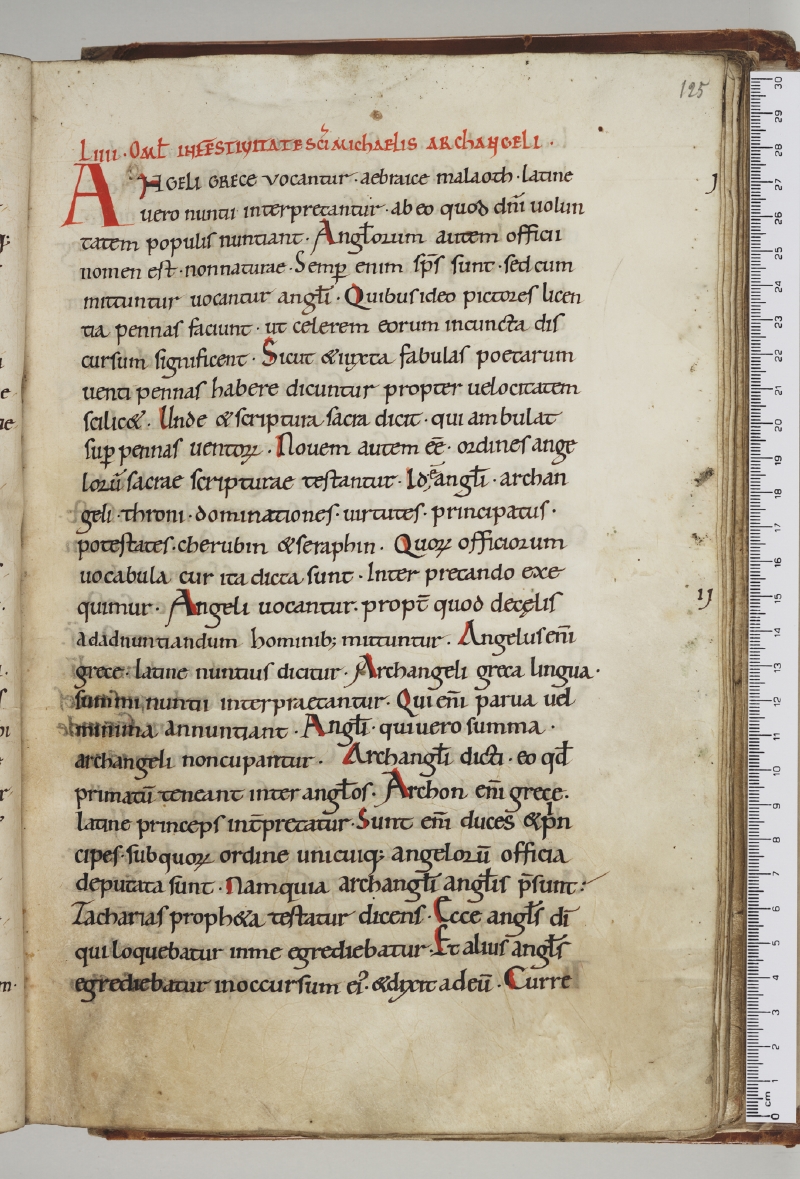 125
Lıııı · Oml̄ IN FESTIVITATE SC̄I MICHAELIS ARCHANGELI ·
ANGELI GRECE vocantur · aebraice malaoth · latine
uero nuntii interpretantur · ab eo quod dn̄i uolun
tatem populis nuntiant · Angl̄orum autem officii
nomen est · non naturae · Semp̲ enim sp̄s sunt · sed cum
mittuntur uocantur angl̄i · Quibus ideo pictores licen
tia pennas faciunt · ut celerem eorum in cuncta dis
cursum significent · Sicut & iuxta fabulas poetarum
uenti pennas habere dicuntur propter uelocitatem
scilic& · Unde & scriptura sacra dicit · qui ambulat
sup̲ pennas uentoꝝ · Nouem autem ēē · ordines ange
lorū sacrae scripturae testantur · Id ē angl̄i · archan
geli · throni · dominationes · uirtutes · principatus ·
potestates · cherubin & seraphin · Quoꝝ officiorum
uocabula cur ita dicta sunt · Inter pretando exe
quimur · Angeli uocantur · propt̄ quod de cęlis
ad adnuntiandum hominib; mittuntur · Angelus eni̅
grece · latine nuntius dicitur · Archangeli greca lingua ·
summi nuntii interpraetantur · Qui eni̅ parua uel
minima annuntiant · Angl̄i · qui uero summa ·
archangeli noncupantur · Archangl̄i dicti · eo qd̄
primatū teneant inter angl̄os · Archon eni̅ grece ·
latine princeps int̄pretatur · Sunt eni̅ duces & prin
cipes · sub quoꝝ ordine unicuiq; angelorū officia
deputata sunt · Nam quia archangl̄i angl̄is p̄sunt :
Zacharias proph&a testatur dicens · Ecce angl̄s dī
qui loquebatur in me egrediebatur · Et alius angl̄s
egrediebatur in occursum ei᾿ · & dixit ad eū · Curre
ı
ıı